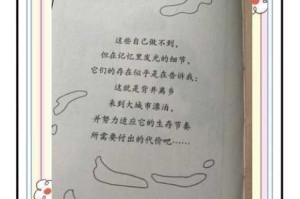 这些自己做不到，
但在记忆里发光的细节，
它们的存在似乎是在告诉我：
这就是背井离乡
来到大城市漂泊，
并努力适应它的生存节奏
所需要付出的代价吧……